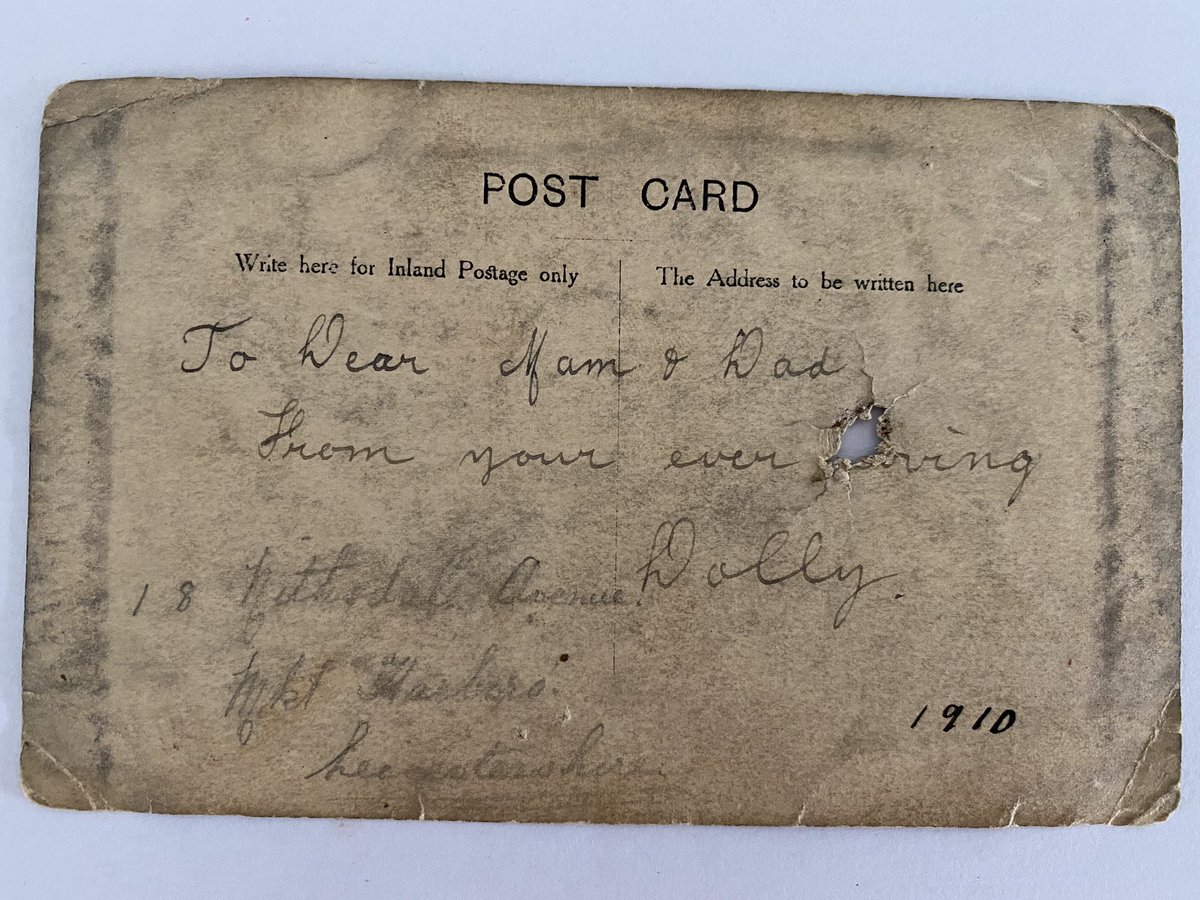 POST CARD
Write here for Inland Postage only
The Address to be written here
To Dear Mam & Dad
From your ever loving
Dolly.
18 Nithsdale Avenue.
Mkt Harboro'
Leicestershire
1910